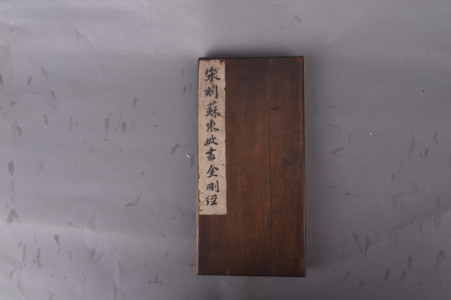 宋刻蘇東坡書金剛經